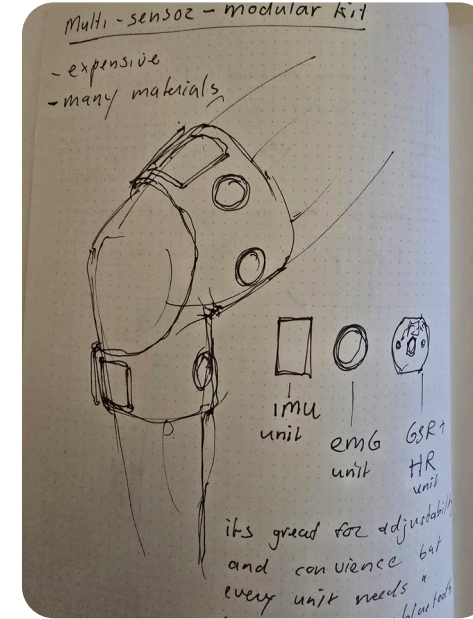 Multi-sensor-modular kit
- expensive
- many materials
imu
unit
emG
unit
GSR+
HR
unit
its great for adjustability
and convience but
every unit needs a